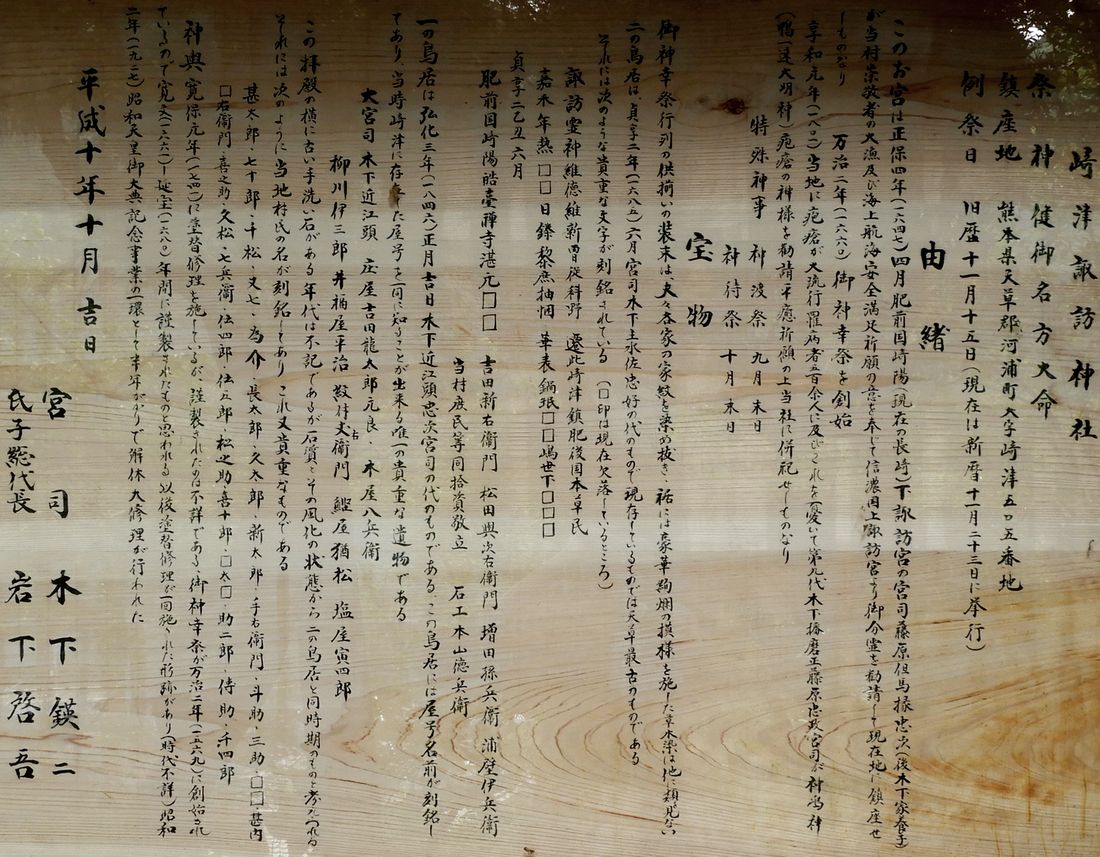 崎津諏訪神社
祭神 健御名方大命
鎮座地 熊本県天草郡河浦町大字崎津五〇五番地
例祭日 旧暦十一月十五日(現在は新暦十一月二十三日に挙行)
由緒
このお宮は正保四年(一六四七)四月肥前国崎陽(現在の長崎)下諏訪宮の宮司藤原但馬掾忠次(後木下家養子)
が当村崇敬者の大漁及び海上航海安全満足祈願の意を奉じて信濃国上諏訪宮より御分霊を勧請して現在地に鎮座せ
しものなり
万治三年(一六六〇)御神幸祭を創始
享和元年(一八〇一)当地に疱瘡が大流行罹病者五百余人に及びこれを憂いて第九代木下播磨正藤原忠政宮司が村鴻神
(鴨一速大明神)疱瘡の神様を勧請し平癒祈願の上当社に併祀せしものなり
特殊神事 神渡祭 九月末日
神待祭 十月末日
宝物
御神幸祭行列の供揃いの装束は、夫々各家の家紋を染め抜き、裾には豪華絢爛の模様を施した草木染は他に類を見ない
二の鳥居は、貞享二年(一六八五)六月宮司木下主水佐忠好の代のもので現存しているものでは天草最古のものである
それには次のような貴重な文字が刻銘されている (□印は現在欠落しているところ)
諏訪霊神維徳維新曽従科野 遷此崎津鎮肥後国本草民
嘉禾年熟□□日鋒黎庶抽悃 華表鍋珉□□嶋世下□□□
貞享二乙丑六月
肥前国崎陽皓臺禅寺湛元□□ 吉田新右衛門 松田與次右衛門 増田孫兵衛 浦壁伊兵衛
当村庶民等同拾資敬立 石工本山徳兵衛
一の鳥居は弘化三年(一八四六)正月吉日木下近江頭忠次宮司の代のものである、この鳥居には屋号名前が刻銘し
てあり、当時崎津に存在した屋号を一同に知ることが出来る唯一の貴重な遺物である
大宮司 木下近江頭 庄屋吉田龍太郎元良・木屋八兵衛
柳川伊三郎 井桶屋平治 紋付丈右衛門 鰹屋猶松 塩屋寅四郎
この拝殿の横に古い手洗い石がある年代は不記であるが石質とその風化の状態から二の鳥居と同時期のものと考えられる
それには次のように当地村氏の名が刻銘してあり これ又貴重なものである
甚太郎・七十郎・千松・又七・為介・長太郎・久太郎・新太郎・手右衛門・斗助・三助・□□・甚内
□右衛門・喜之助・久松・七兵衛・伝四郎・仕五郎・松之助・喜十郎・□太□・助二郎・侍助・千四郎
神輿 寛保元年(一七四一)に塗替修理を施しているが、謹製されたのは不詳である、御神幸祭が万治二年(一六五九)に創始され
ているので寛文(一六六一)~延宝(一六八〇)年間に謹製されたものと思われる 以後塗替修理が一回施された形跡があり(時代不詳)昭和
二年(一九二七)昭和天皇御大典記念事業の一環として半年がかりで解体大修理が行われた
平成十年十月吉日
宮司 木下鍈二
氏子総代長 岩下啓吾